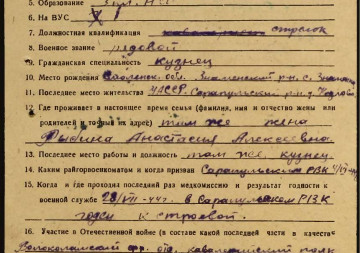 5. Образование
6. На ВУС
7. Должностная квалификация стрелок
8. Военное звание рядовой
9. Гражданская специальность кузнец
10. Место рождения обл. Знаменский р-н, с.
11. Последнее местожительства УАССР, Сарапульский р-н, д.
12. Где проживает в настоящее время семья (фамилия, имя и отчество жены или
родителей и точный их адрес) там же жена
Рыбина Анастасия Алексеевна
13. Последнее место работы и должность там же, кузнец
14. Каким райгорвоенкоматом и когда призван Сарапульским РВК
15. Когда и где проходил последний раз медкомиссию и результат годности к
военной службе 28/VII-44г. в Сарапульском РВК
годен к строевой.
16. Участие в Отечественной войне (в составе какой последней части в качестве
Волховский фр. кавалерийский полк